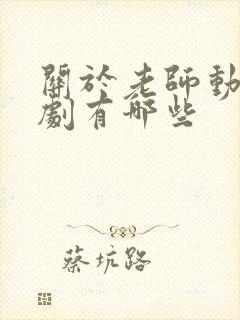 關於老師動
劇有哪些
蔡坑路